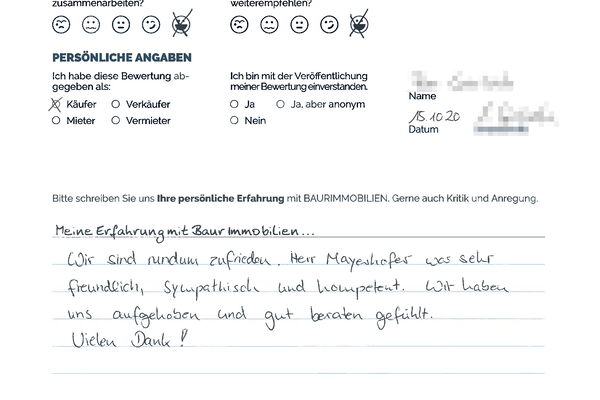 zusammenarbeiten?
weiterempfehlen?
PERSÖNLICHE ANGABEN
Ich habe diese Bewertung ab-
gegeben als:
Käufer
Verkäufer
Mieter
Vermieter
Ich bin mit der Veröffentlichung
meiner Bewertung einverstanden.
Ja
Ja, aber anonym
Nein
Name
15.10.20
Datum
Bitte schreiben Sie uns Ihre persönliche Erfahrung mit BAURIMMOBILIEN. Gerne auch Kritik und Anregung.
Meine Erfahrung mit Baur Immobilien...
Wir sind rundum zufrieden. Herr Mayershofer was sehr
freundlich, sympathisch und kompetent. Wir haben
uns aufgehoben und gut beraten gefühlt.
Vielen Dank!